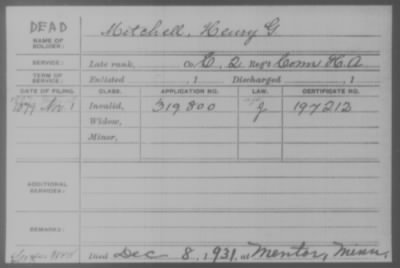 DEAD
NAME OF SOLDIER: Mitchell, Henry G.
SERVICE: Late rank, Co. C, 2 Reg't Conn H.A
TERM OF SERVICE: Enlisted , 1 Discharged , 1
DATE OF FILING. CLASS. APPLICATION NO. LAW. CERTIFICATE NO.
1879 Nov 1 Invalid, 319800 J 197212
Widow,
Minor,
ADDITIONAL SERVICES:
REMARKS:
Died Dec 8, 1931, at Mentor, Minn.